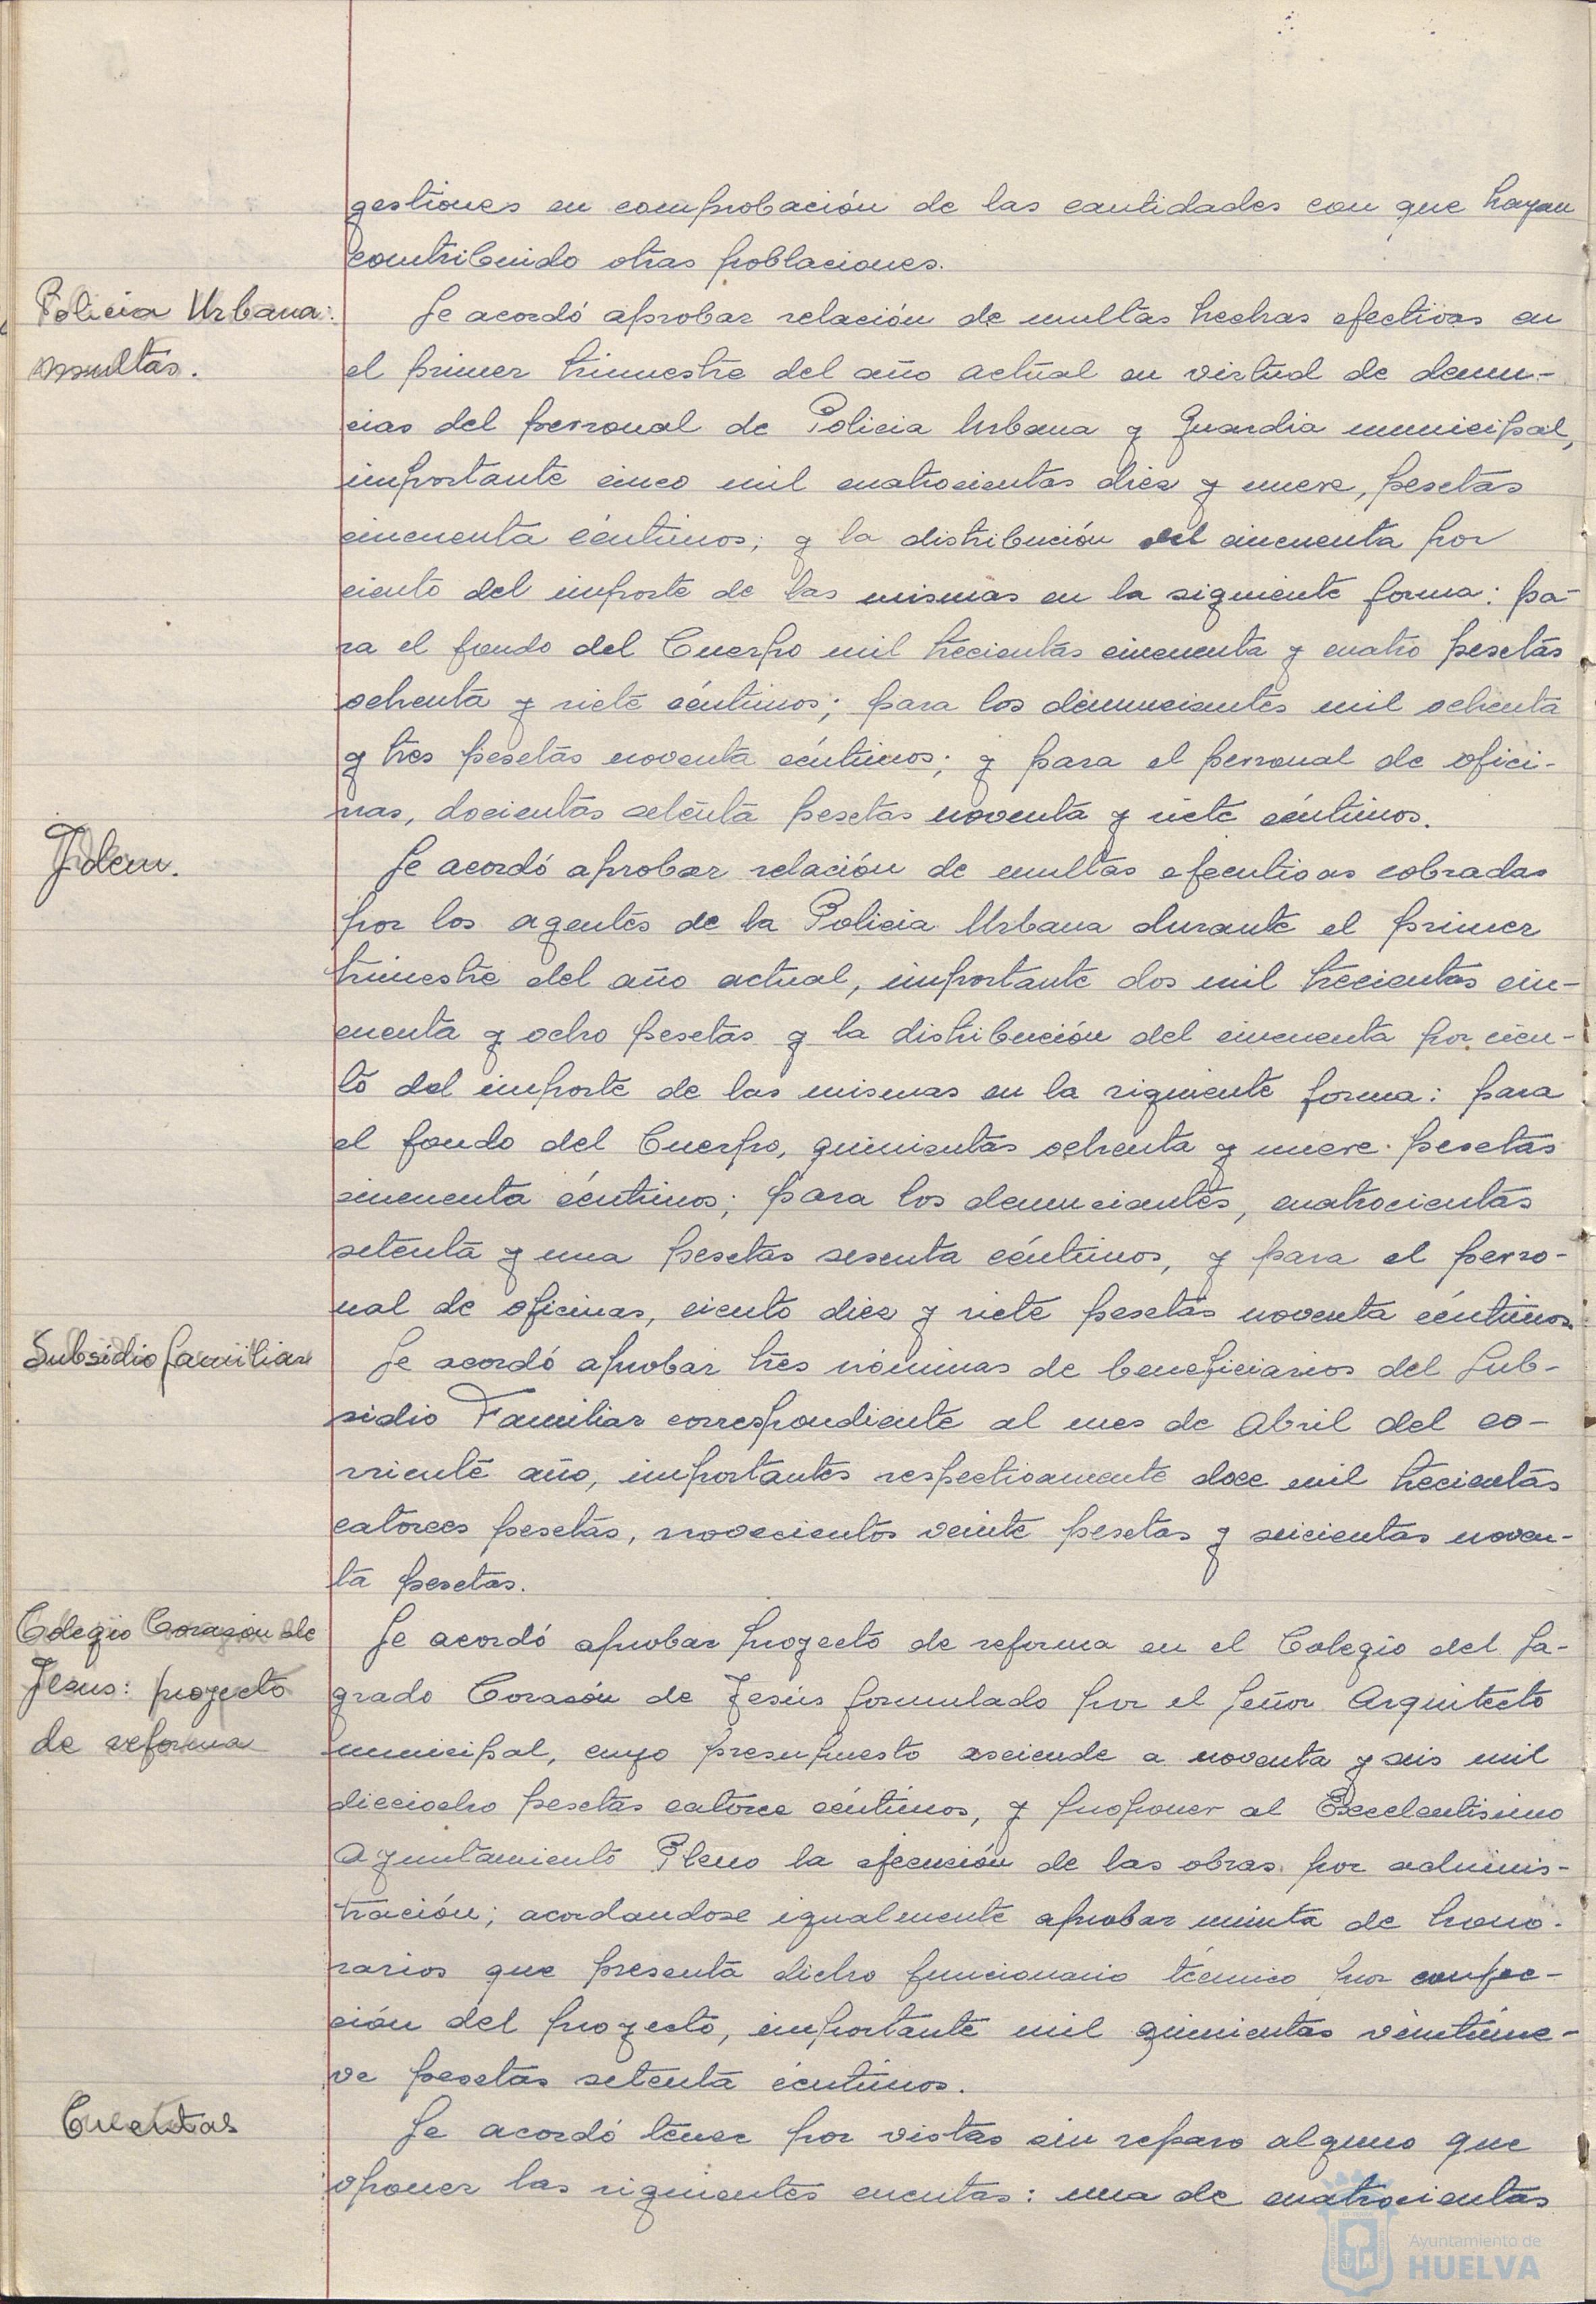 gestiones en comprobación de las cantidades con que hayan
contribuido otras poblaciones.
Policia Urbana:
multas.
Se acordó aprobar relación de multas hechas efectivas en
el primer trimestre del año actual en virtud de denun-
cias del personal de Policia Urbana y Guardia municipal,
importante cinco mil cuatrocientas diez y nueve, pesetas
cincuenta céntimos; y la distribución del cincuenta por
ciento del importe de las mismas en la siguiente forma: pa-
ra el fondo del Cuerpo mil trecientas cincuenta y cuatro pesetas
ochenta y siete céntimos; para los denunciantes mil ochenta
y tres pesetas noventa céntimos; y para el personal de ofici-
nas, docientas setenta pesetas noventa y siete céntimos.
Idem.
Se acordó aprobar relación de multas efecutivas cobradas
por los agentes de la Policia Urbana durante el primer
trimestre del año actual, importante dos mil trecientas cin-
cuenta y ocho pesetas y la distribución del cincuenta por cien-
to del importe de las mismas en la siguiente forma: para
el fondo del Cuerpo, quinientas ochenta y nueve pesetas
cincuenta céntimos; para los denunciantes, cuatrocientas
setenta y una pesetas sesenta céntimos, y para el perso-
nal de oficinas, ciento diez y siete pesetas noventa céntimos.
Subsidio familiar
Se acordó aprobar tres nóminas de beneficiarios del Sub-
sidio Familiar correspondiente al mes de Abril del co-
rriente año, importantes respectivamente doce mil trecientas
catorces pesetas, novecientos veinte pesetas y seicientas noven-
ta pesetas.
Colegio Corazon de
Jesus: proyecto
de reforma
Se acordó aprobar proyecto de reforma en el Colegio del Sa-
grado Corazón de Jesús formulado por el Señor Arquitecto
municipal, cuyo presupuesto asciende a noventa y seis mil
dieciocho pesetas catorce céntimos, y proponer al Excelentisimo
Ayuntamiento Pleno la ejecución de las obras por adminis-
tración; acordandose igualmente aprobar minuta de hono-
rarios que presenta dicho funcionario técnico por confec-
ción del proyecto, importante mil quinientas veintinue-
ve pesetas setenta céntimos.
Cuentas
Se acordó tener por vistas sin reparo alguno que
oponer las siguientes cuentas: una de cuatrocientas
Ayuntamiento de
HUELVA